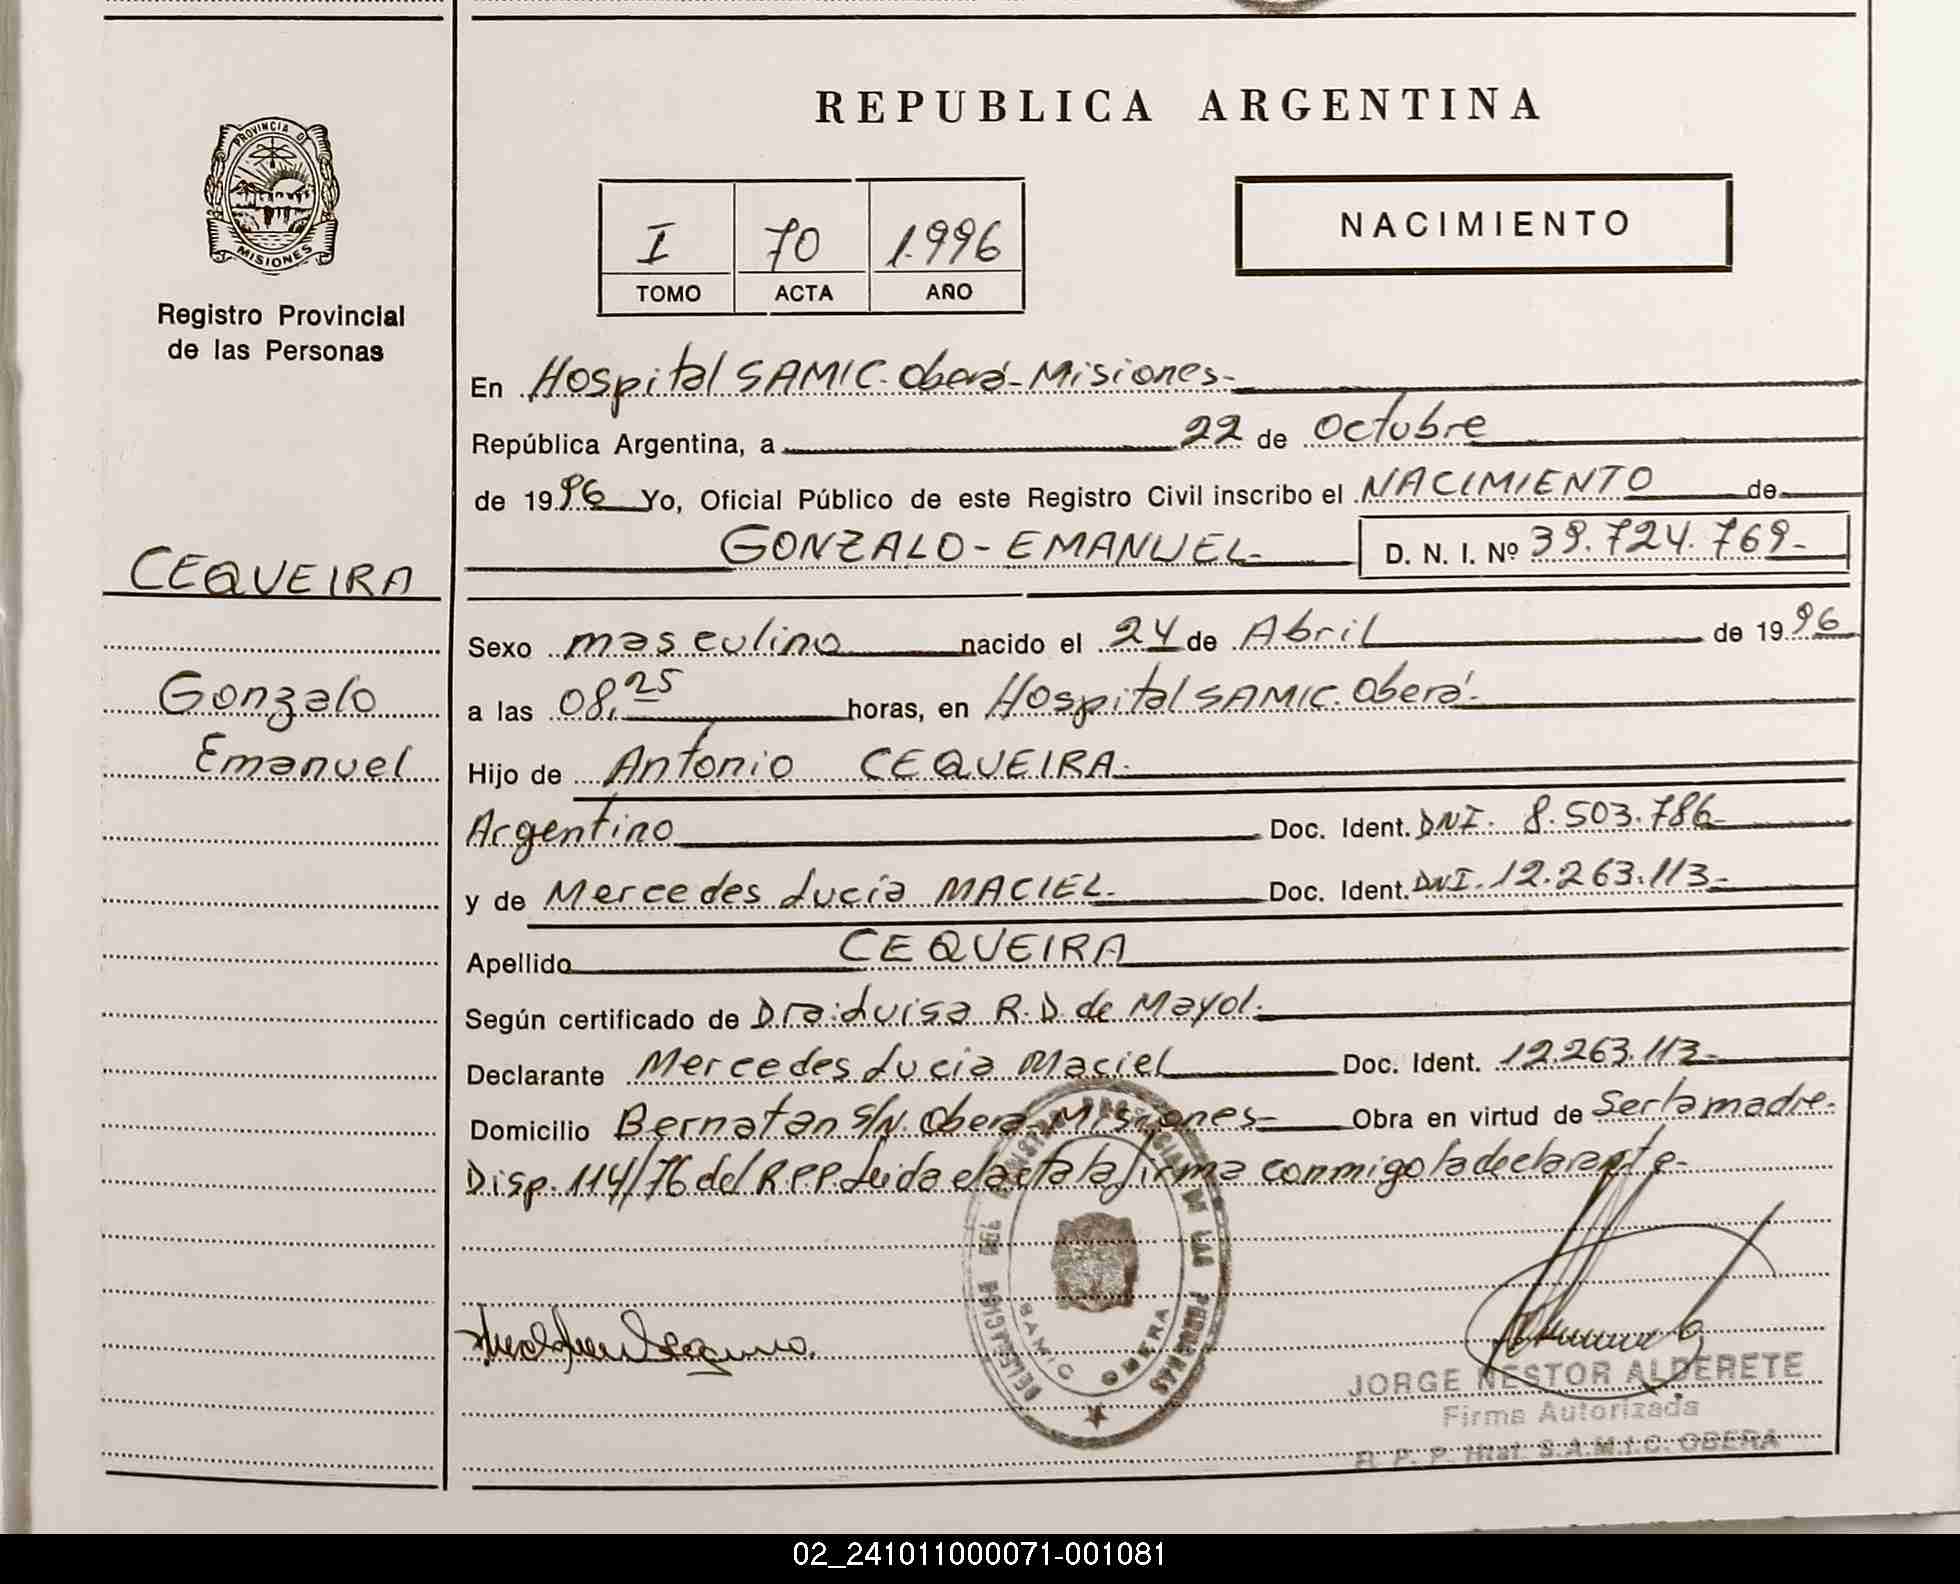 REPUBLICA ARGENTINA
PROVINCIA D
MISIONES
Registro Provincial
de las Personas
I 70 1.996
TOMO ACTA AÑO
NACIMIENTO
En Hospital SAMIC. Oberá-Misiones-
República Argentina, a 22 de Octubre
de 1996 Yo, Oficial Público de este Registro Civil inscribo el NACIMIENTO de
CEQUEIRA
GONZALO-EMANUEL- D. N. I. Nº 39.724.769-
Sexo masculino nacido el 24 de Abril de 1996
Gonzalo
Emanuel
a las 08,25 horas, en Hospital SAMIC. Oberá-
Hijo de Antonio CEQUEIRA-
Argentino Doc. Ident. DNI. 8.503.786-
y de Mercedes Lucía MACIEL- Doc. Ident. DNI. 12.263.113-
Apellido CEQUEIRA
Según certificado de Dra: Luisa R. D. de Mayol.
Declarante Mercedes Lucia Maciel Doc. Ident. 12.263.113-
Domicilio Bernatan S/N. Oberá-Misiones- Obra en virtud de Ser la madre.
Disp. 114/76 del RPP. Leida el acta la firma conmigo la declarante-
DELEGACION
DE LAS PERSONAS
SAMIC OBERA
JORGE NESTOR ALDERETE
Firma Autorizada
R. P. P. Htal. S.A.M.I.C. OBERA
02_241011000071-001081